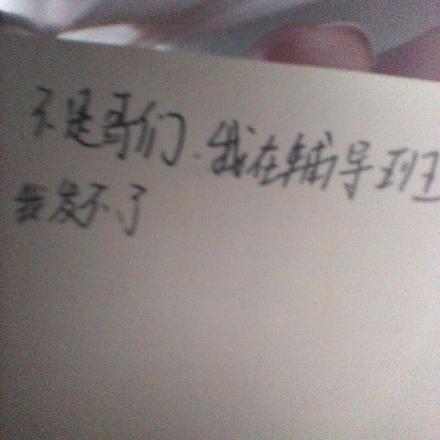 不是哥们、我在辅导班
我发不了